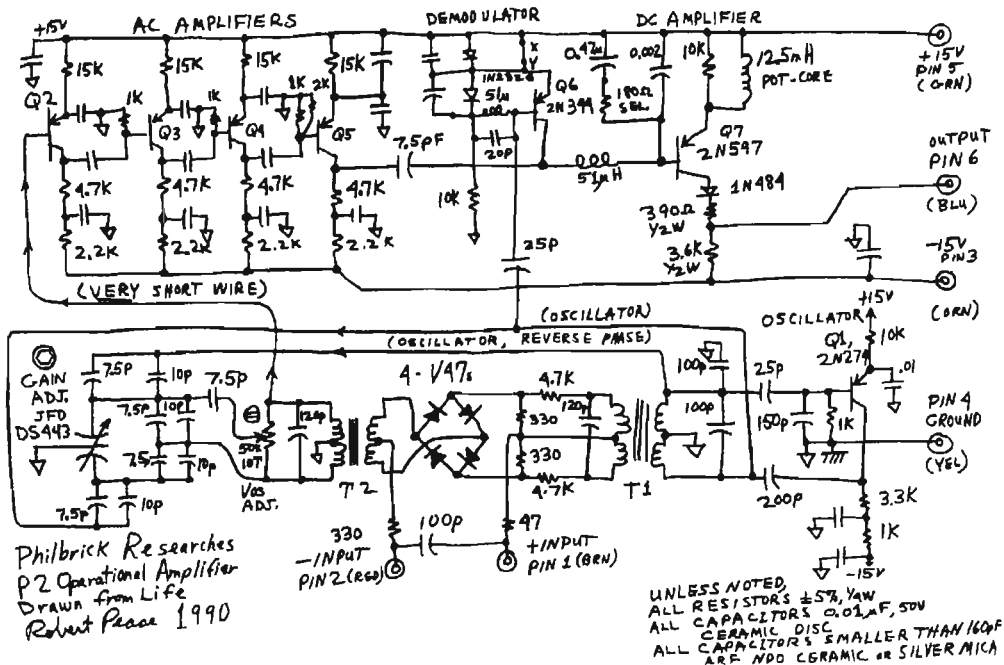 AC AMPLIFIERS
DEMODULATOR
DC AMPLIFIER
+15V
15K
15K
15K
15K
Q2
1K
1K
1K
2K
Q3
Q4
Q5
4.7K
4.7K
4.7K
4.7K
2.2K
2.2K
2.2K
2.2K
X
Y
51µ
Q6
2N344
20p
7.5pF
10K
25p
0.47µ
0.002
180Ω
SEL.
51µH
10K
12.5mH
POT-CORE
Q7
2N597
1N484
390Ω
½W
3.6K
½W
+15V
PIN 5
(GRN)
OUTPUT
PIN 6
(BLU)
-15V
PIN 3
(ORN)
(VERY SHORT WIRE)
(OSCILLATOR)
(OSCILLATOR, REVERSE PHASE)
OSCILLATOR
Q1,
2N274
+15V
10K
.01
GAIN
ADJ.
JFD
DS443
7.5p
10p
7.5p
7.5p
10p
7.5p
10p
7.5p
10p
50Ω
10T
VOS
ADJ.
120p
T2
4-1V47s
4.7K
330
330
4.7K
120p
T1
100p
100p
25p
150p
1K
200p
3.3K
1K
-15V
PIN 4
GROUND
(YEL)
330
100p
47
-INPUT
PIN 2 (RED)
+INPUT
PIN 1 (BRN)
Philbrick Researches
P2 Operational Amplifier
Drawn from Life
Robert Pease 1990
UNLESS NOTED,
ALL RESISTORS ±5%, ¼W
ALL CAPACITORS 0.01µF, 50V
CERAMIC DISC
ALL CAPACITORS SMALLER THAN 160pF
ARE NPO CERAMIC OR SILVER MICA